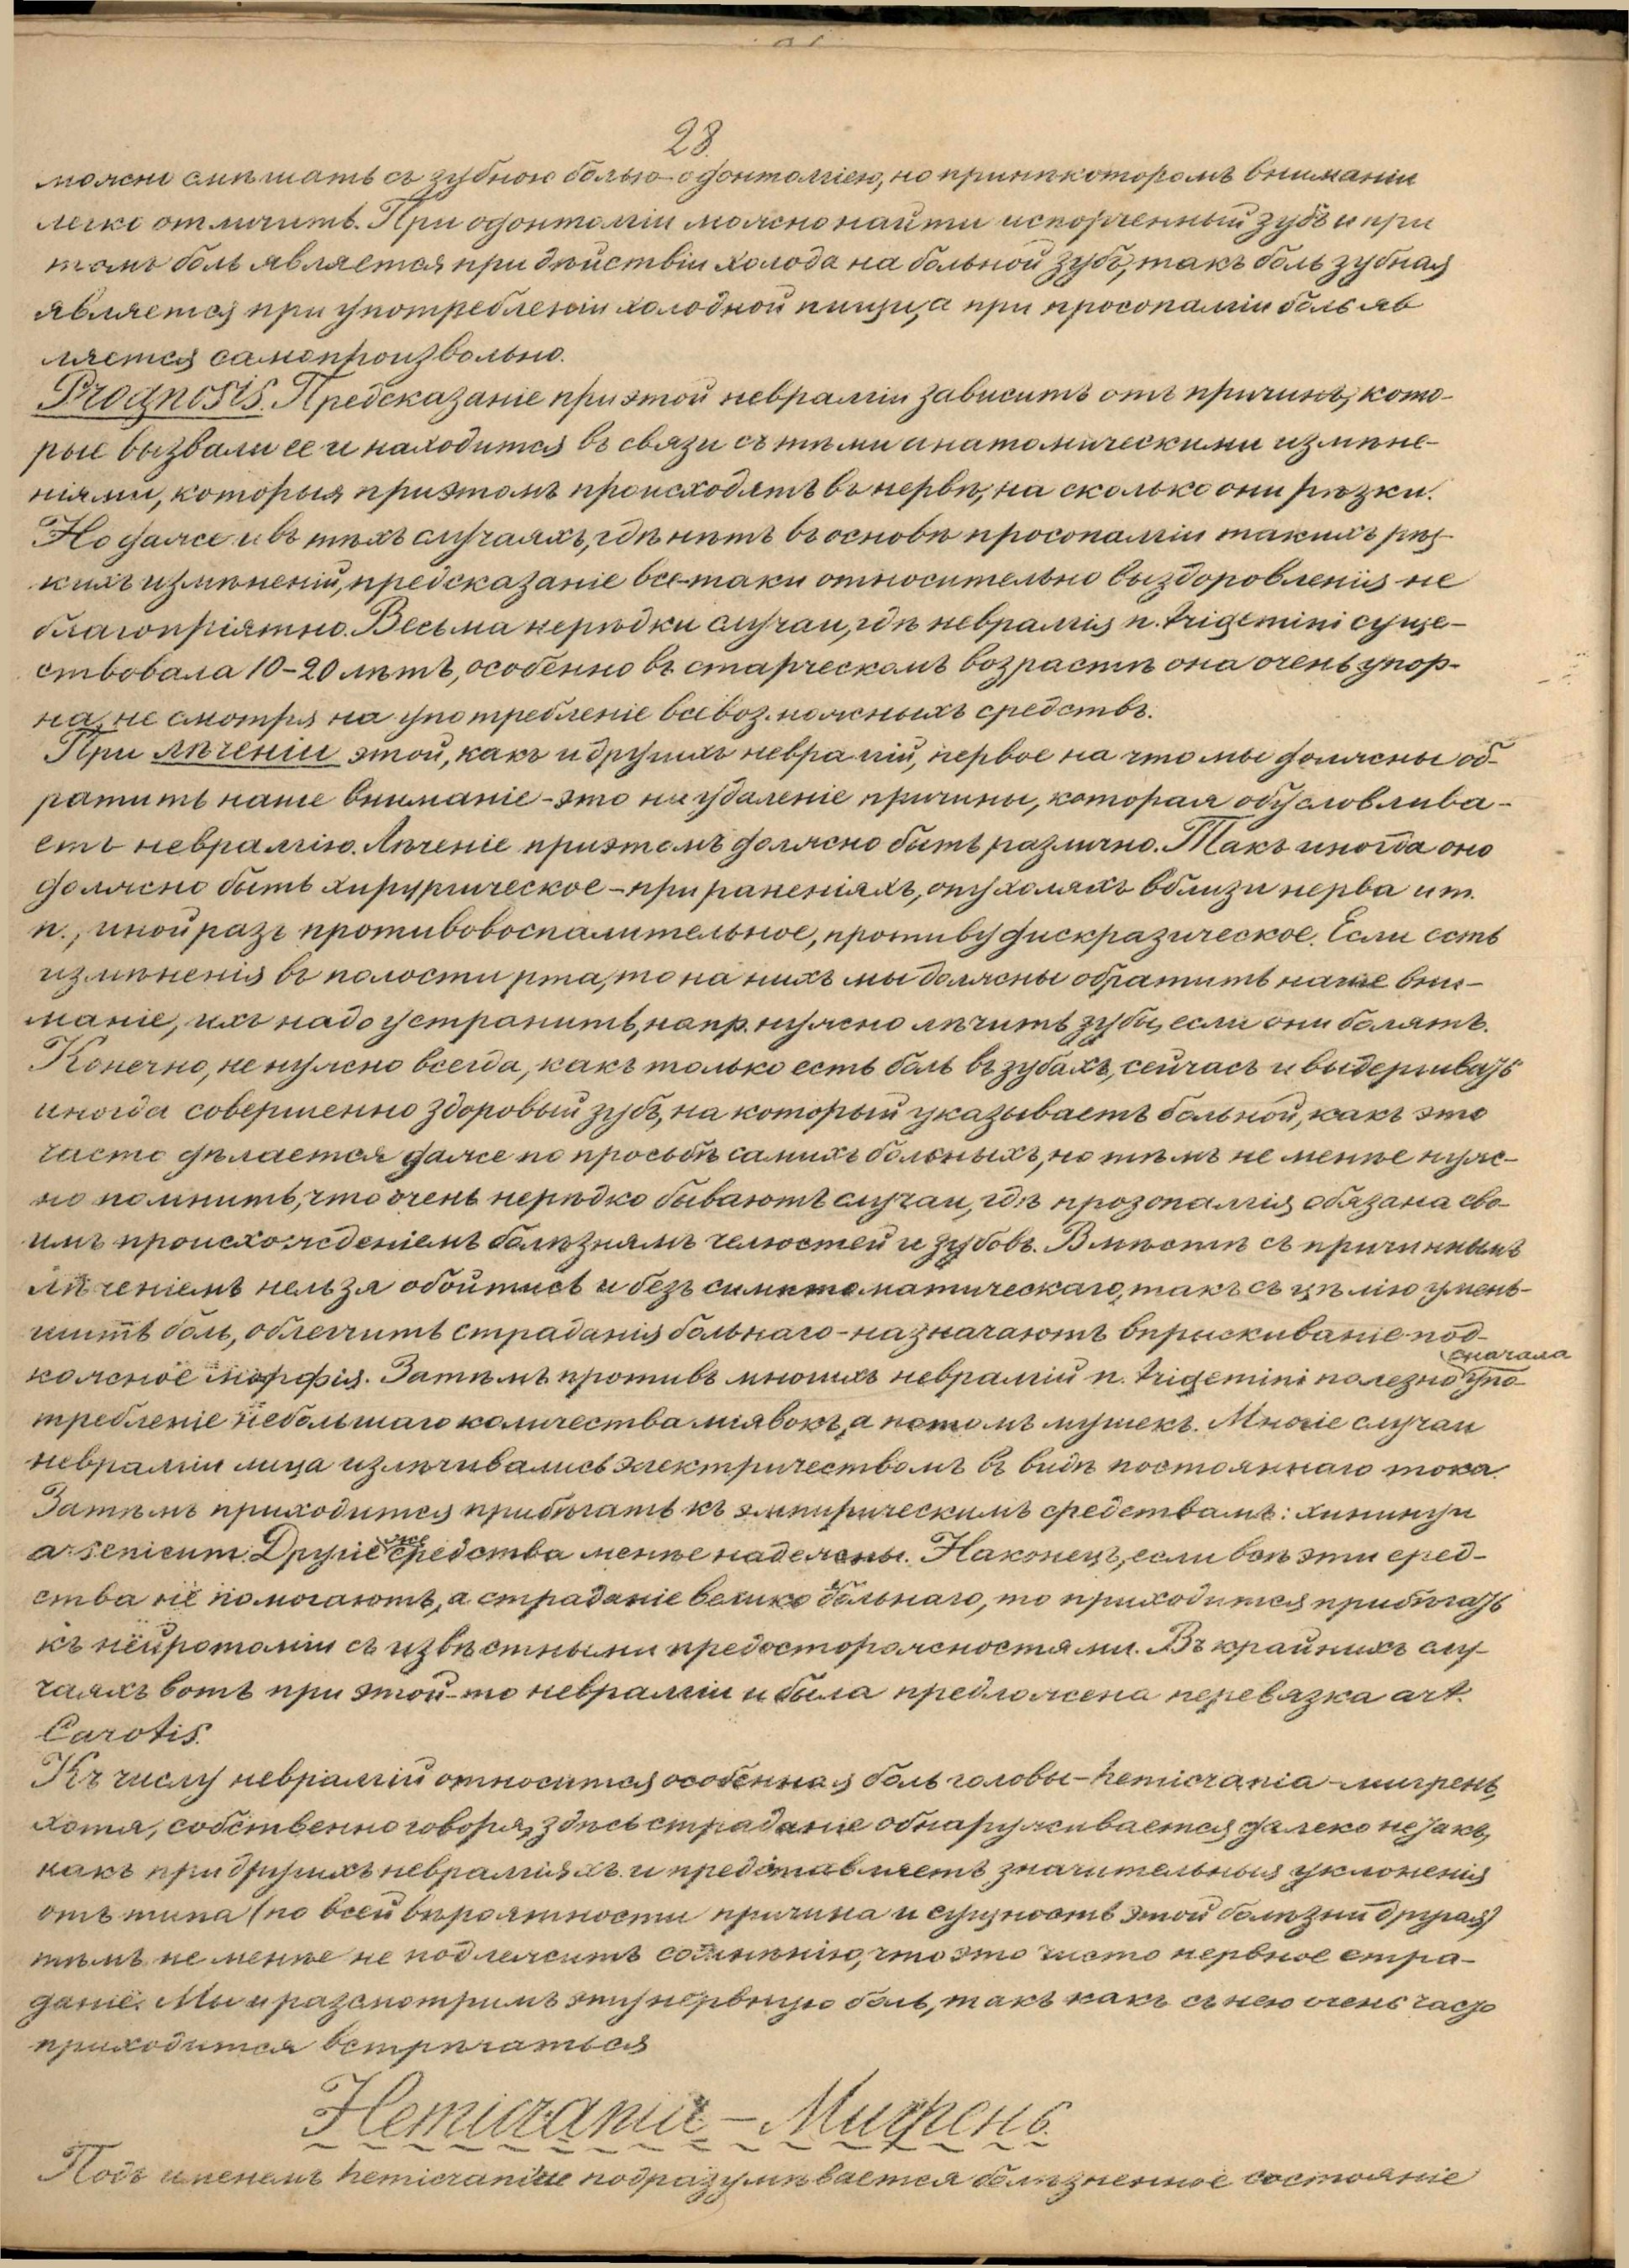 28.
можно смѣшать съ зубною болью-одонтолгіею, но при нѣкоторомъ вниманіи
легко отличить. При одонтолгіи можно найти испорченный зубъ и при
томъ боль является при дѣйствіи холода на больной зубъ, такъ боль зубная
является при употребленіи холодной пищи, а при просопалгіи боль яв
ляется самопроизвольно.
Prognosis. Предсказаніе при этой невралгіи зависитъ отъ причинъ, кото-
рые вызвали ее и находится въ связи съ тѣми анатомическими измѣне-
ніями, которыя приэтомъ происходятъ въ нервѣ, на сколько они рѣзки.
Но даже и въ тѣхъ случаяхъ, гдѣ нѣтъ въ основѣ просопалгіи такихъ рѣз-
кихъ измѣненій, предсказаніе все-таки относительно выздоровленія не
благопріятно. Весьма нерѣдки случаи, гдѣ невралгія n. trigemini суще-
ствовала 10-20 лѣтъ, особенно въ старческомъ возрастѣ она очень упор-
на, не смотря на употребленіе всевозможныхъ средствъ.
При лѣченіи этой, какъ и другихъ невралгій, первое на что мы должны об-
ратить наше вниманіе - это на удаленіе причины, которая обусловлива-
етъ невралгію. Лѣченіе приэтомъ должно быть различно. Такъ иногда оно
должно быть хирургическое - при раненіяхъ, опухоляхъ вблизи нерва и т.
п., иной разъ противовоспалительное, противудискразическое. Если есть
измѣненія въ полости рта, то на нихъ мы должны обратить наше вни-
маніе, ихъ надо устранить, напр. нужно лѣчить зубы, если они болятъ.
Конечно, не нужно всегда, какъ только есть боль въ зубахъ, сейчасъ и выдергивать
иногда совершенно здоровый зубъ, на который указываетъ больной, какъ это
часто дѣлается даже по просьбѣ самихъ больныхъ, но тѣмъ не менѣе нуж-
но помнить, что очень нерѣдко бываютъ случаи, гдѣ прозопалгія обязана сво-
имъ происхожденіемъ болѣзнямъ челюстей и зубовъ. Вмѣстѣ съ причиннымъ
лѣченіемъ нельзя обойтись и безъ симптоматическаго, такъ съ цѣлію умень-
шить боль, облегчить страданія больнаго - назначаютъ впрыскиваніе под-
кожное морфія. Затѣмъ противъ многихъ невралгій n. trigemini полезно сначала упо-
требленіе небольшаго количества піявокъ, а потомъ мушекъ. Многіе случаи
невралгіи лица излѣчивались электричествомъ въ видѣ постояннаго тока.
Затѣмъ приходится прибѣгать къ эмпирическимъ средствамъ: хинину и
arsenicum. Другіе же средства менѣе надежны. Наконецъ, если всѣ эти сред-
ства не помогаютъ, а страданіе велико больнаго, то приходится прибѣгать
къ нейротоміи съ извѣстными предосторожностями. Въ крайнихъ слу-
чаяхъ вотъ при этой-то невралгіи и была предложена перевязка art.
Carotis.
Къ числу невралгій относится особенная боль головы - hemicrania - мигрень,
хотя, собственно говоря, здѣсь страданіе обнаруживается далеко не такъ,
какъ при другихъ невралгіяхъ и представляетъ значительныя уклоненія
отъ типа (по всей вѣроятности причина и сущность этой болѣзни другая)
тѣмъ не менѣе не подлежитъ сомнѣнію, что это чисто нервное стра-
даніе. Мы и разсмотримъ эту нервную боль, такъ какъ съ нею очень часто
приходится встрѣчаться
Hemicrania - Мигрень.
Подъ именемъ hemicraniae подразумѣвается болѣзненное состояніе